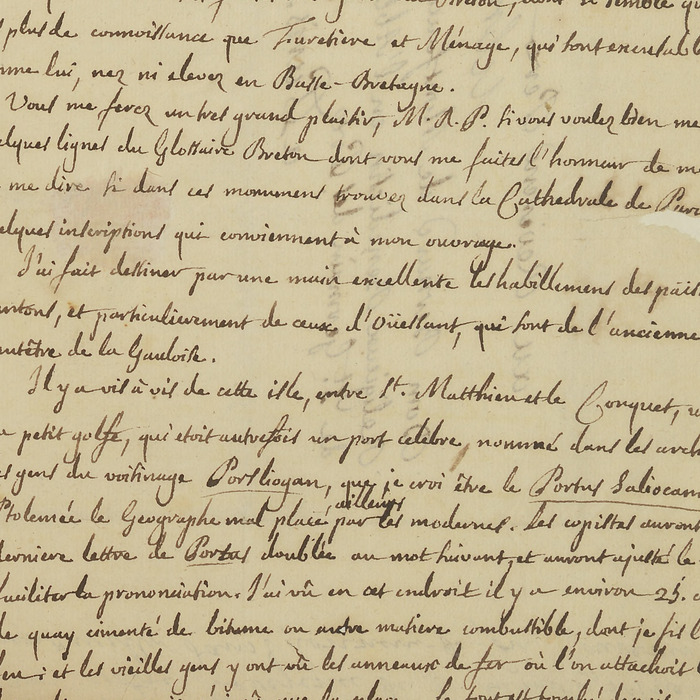 plus de connoissance que Furetiere et Ménage, qui sont excusabl
me lui, nez ni elevez en Basse-Bretagne.
Vous me ferez un tres grand plaisir, M. R. P. si vous voulez bien me
elques lignes du Glossaire Breton dont vous me faites l'honneur de m
me dire si dans ces monumens trouvez dans la Cathedrale de Par
elques inscriptions qui conviennent à mon ouvrage.
J'ai fait dessiner par une main excellente les habillemens des païs
antons, et particulierement de ceux d'Oüessant, qui sont de l'ancienne
eutêtre de la Gauloise.
Il y a vis à vis de cette isle, entre St. Matthieu et le Conquet, u
petit golfe, qui etoit autrefois un port celebre, nommé dans les arch
es gens du voisinage Porsliogan, que je croi être le Portus Saliocan
Ptolemée le Geographe mal placé, par les modernes. Les copistes auront
ailleurs
derniere lettre de Portus doublée au mot suivant, et auront ajusté le
faciliter la prononciation. J'ai vû en cet endroit il y a environ 25.
de quay cimenté de bitume ou autre matiere combustible, dont je fis l
: et les vieilles gens y ont vû les anneaux de fer où l'on attachoit l